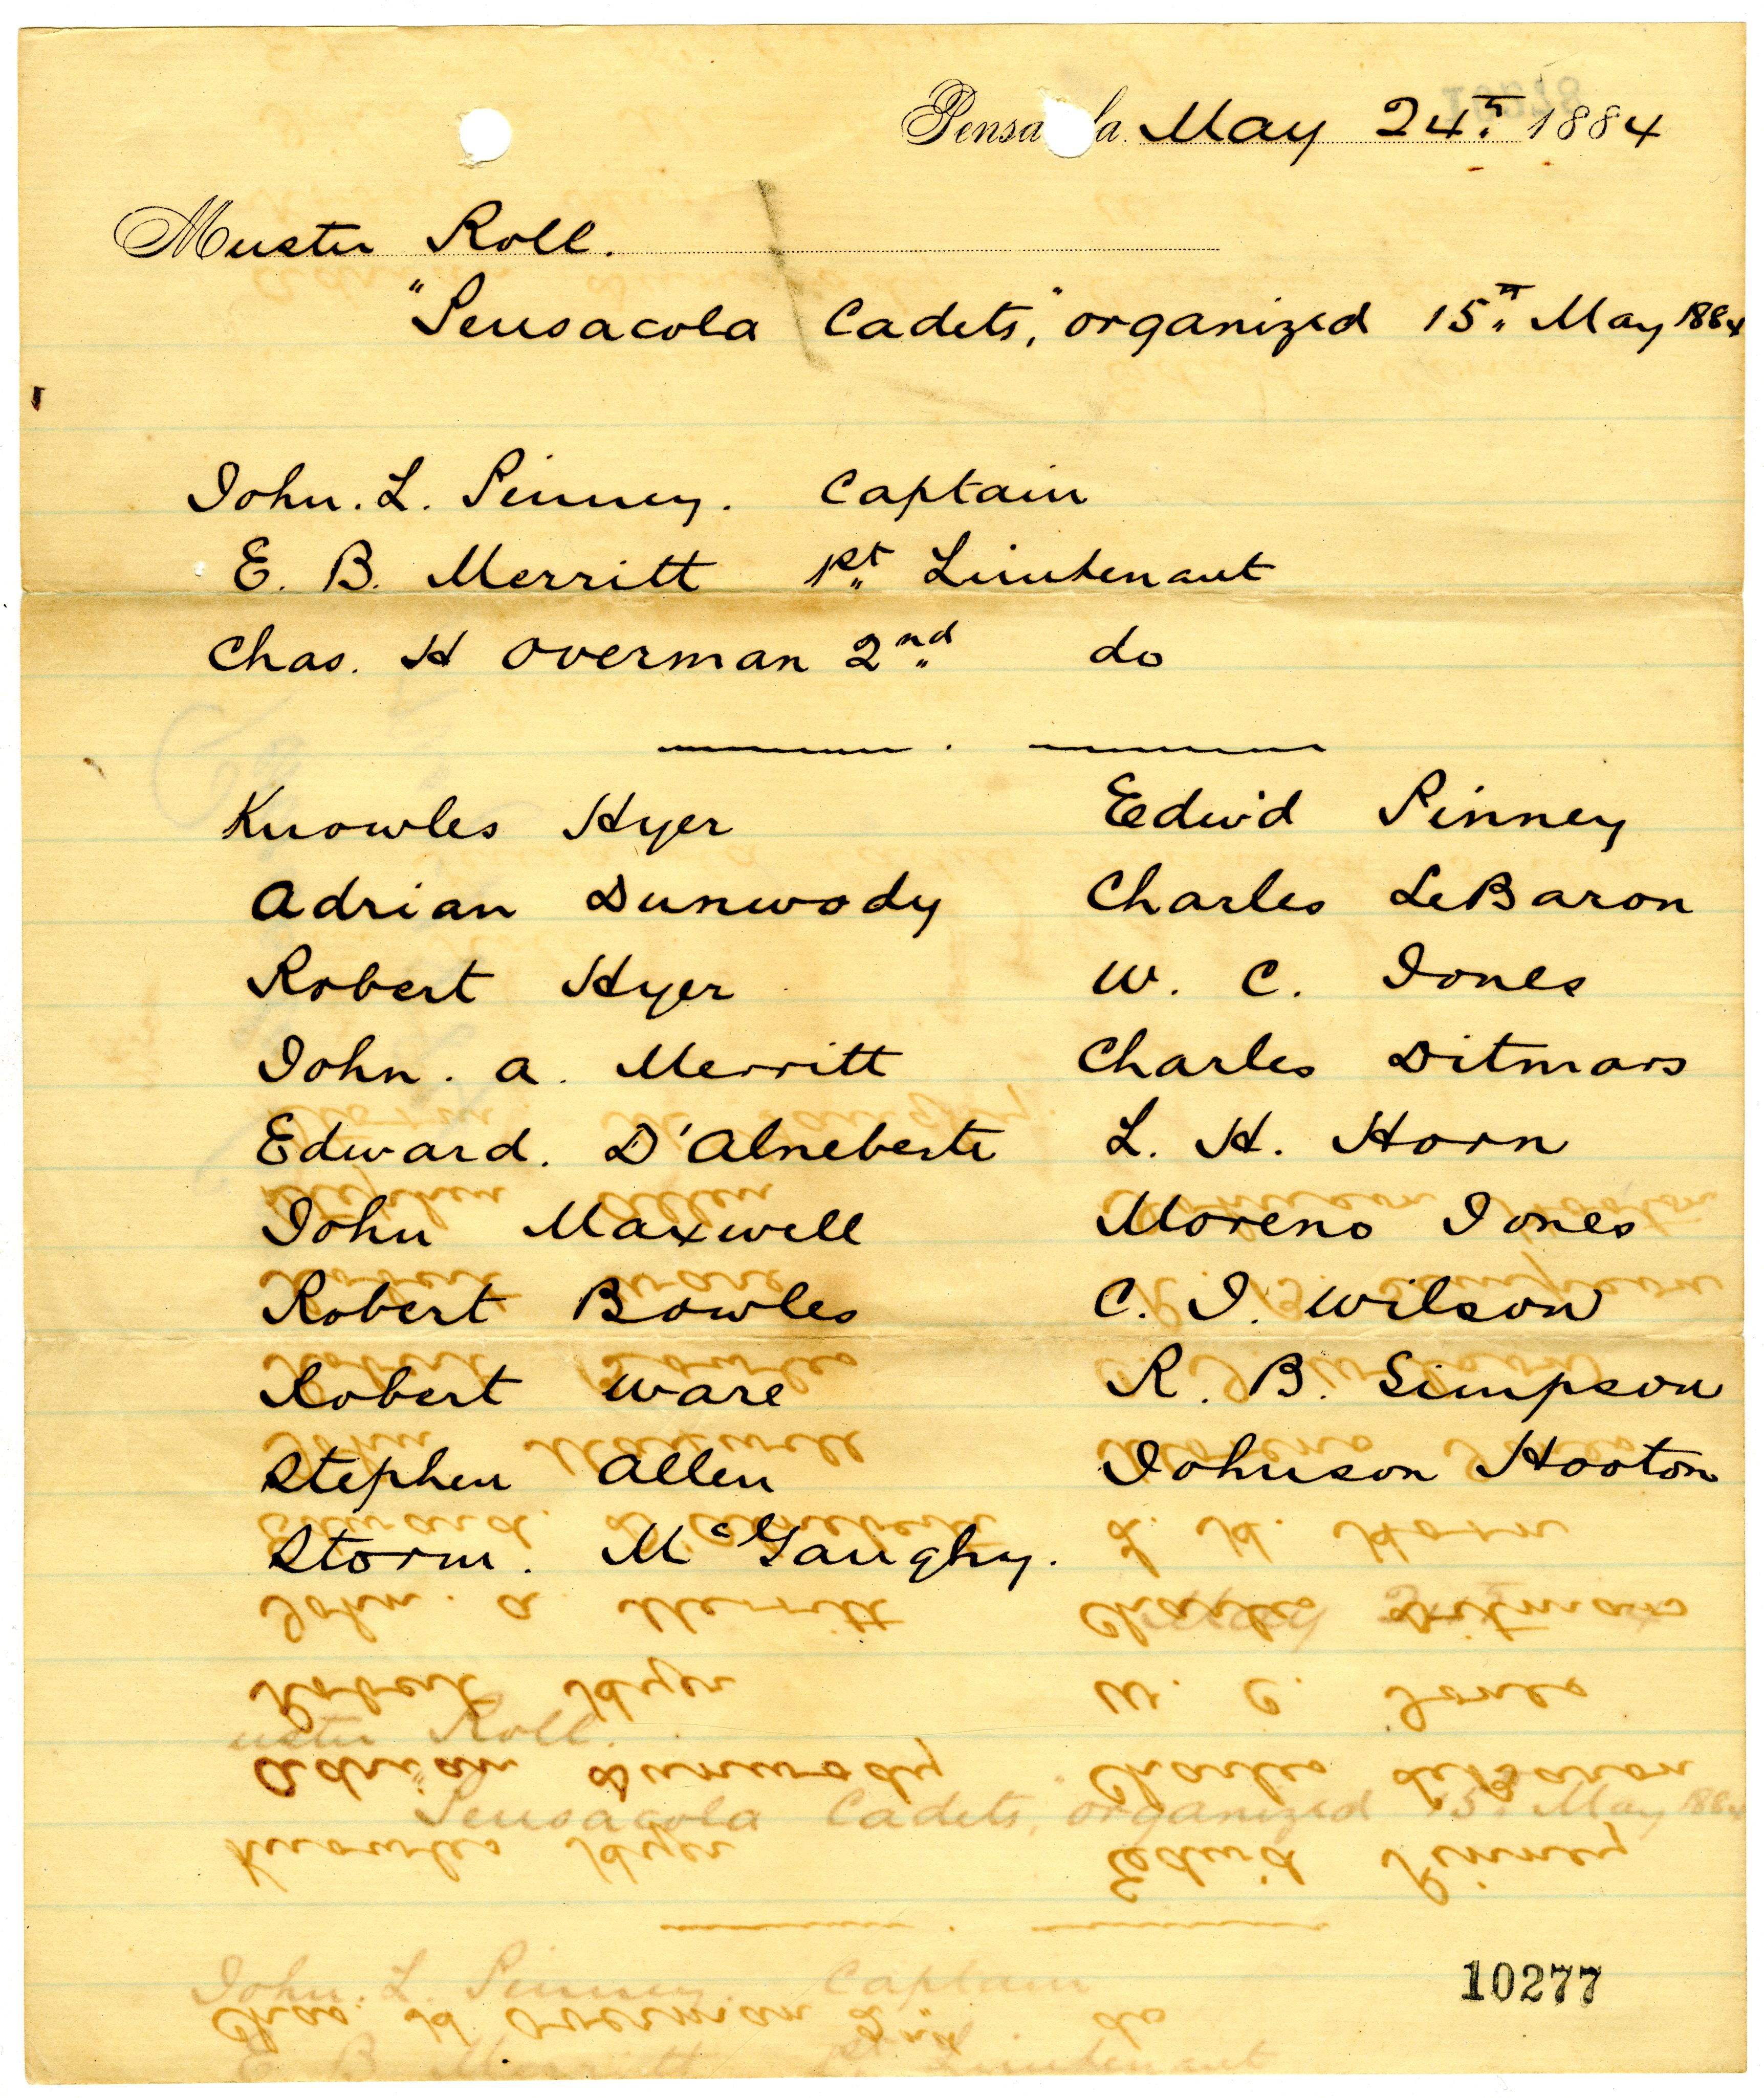 Pensa la. May 24th. 1884
Muster Roll.
"Pensacola Cadets," organized 15th. May 1884
John. L. Pinney. Captain
E. B. Merritt 1st Lieutenant
Chas. H Overman 2nd do
Knowles Hyer Edwd Pinney
Adrian Dunwody Charles LeBaron
Robert Hyer W. C. Jones
John. A. Merritt Charles Ditmars
Edward. D'Alneberte L. H. Horn
John Maxwell Moreno Jones
Robert Bowles C. J. Wilson
Robert Ware R. B. Simpson
Stephen Allen Johnson Hooton
Storm. McGaughy.
10277